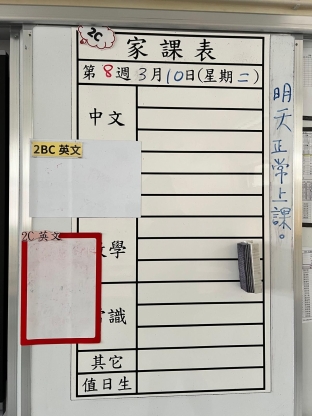 2C
家課表
第8週3月10日(星期二)
中文
2BC 英文
2C 英文
數學
常識
其它
值日生
明天正常上課。